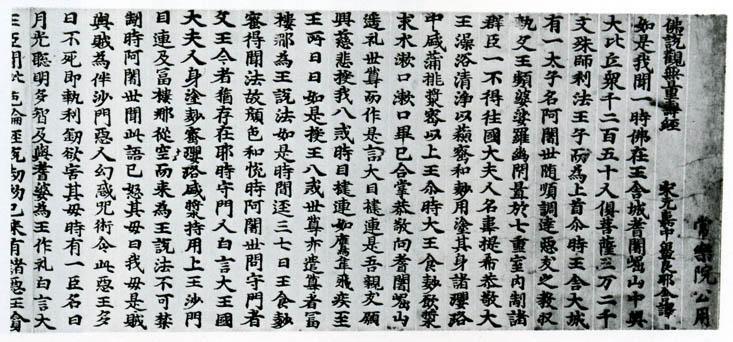 常樂院公用
佛說觀無量壽經 宋元嘉中畺良耶舍譯
如是我聞一時佛在王舍城耆闍崛山中與
大比丘衆千二百五十人俱菩薩三万二千
文殊師利法王子而為上首尒時王舍大城
有一太子名阿闍世随順調達惡友之教収
執父王頻婆娑羅幽閇置於七重室內制諸
群臣一不得往國大夫人名韋提希恭敬大
王澡浴清淨以蘇蜜和麨用塗其身諸瓔珞
中盛蒲桃漿蜜以上王尒時大王食麨飲漿
求水漱口漱口畢已合掌恭敬向耆闍崛山
遥礼世尊而作是言大目揵連是吾親友願
興慈悲授我八戒時目揵連如鷹隼飛疾至
王所日日如是授王八戒世尊亦遣尊者冨
樓那為王說法如是時間逕三七日王食麨
蜜得聞法故顏色和悅時阿闍世問守門者
父王今者猶存在耶時守門人白言大王國
大夫人身塗麨蜜瓔珞盛漿持用上王沙門
目連及冨樓那從空而来為王說法不可禁
制時阿闍世聞此語已怒其母曰我母是賊
與賊為伴沙門惡人幻惑呪術令此惡王多
日不死即執利劒欲害其母時有一臣名曰
月光聰明多智及與耆婆為王作礼白言大
王臣聞 論經說劫初已来有諸惡王貪